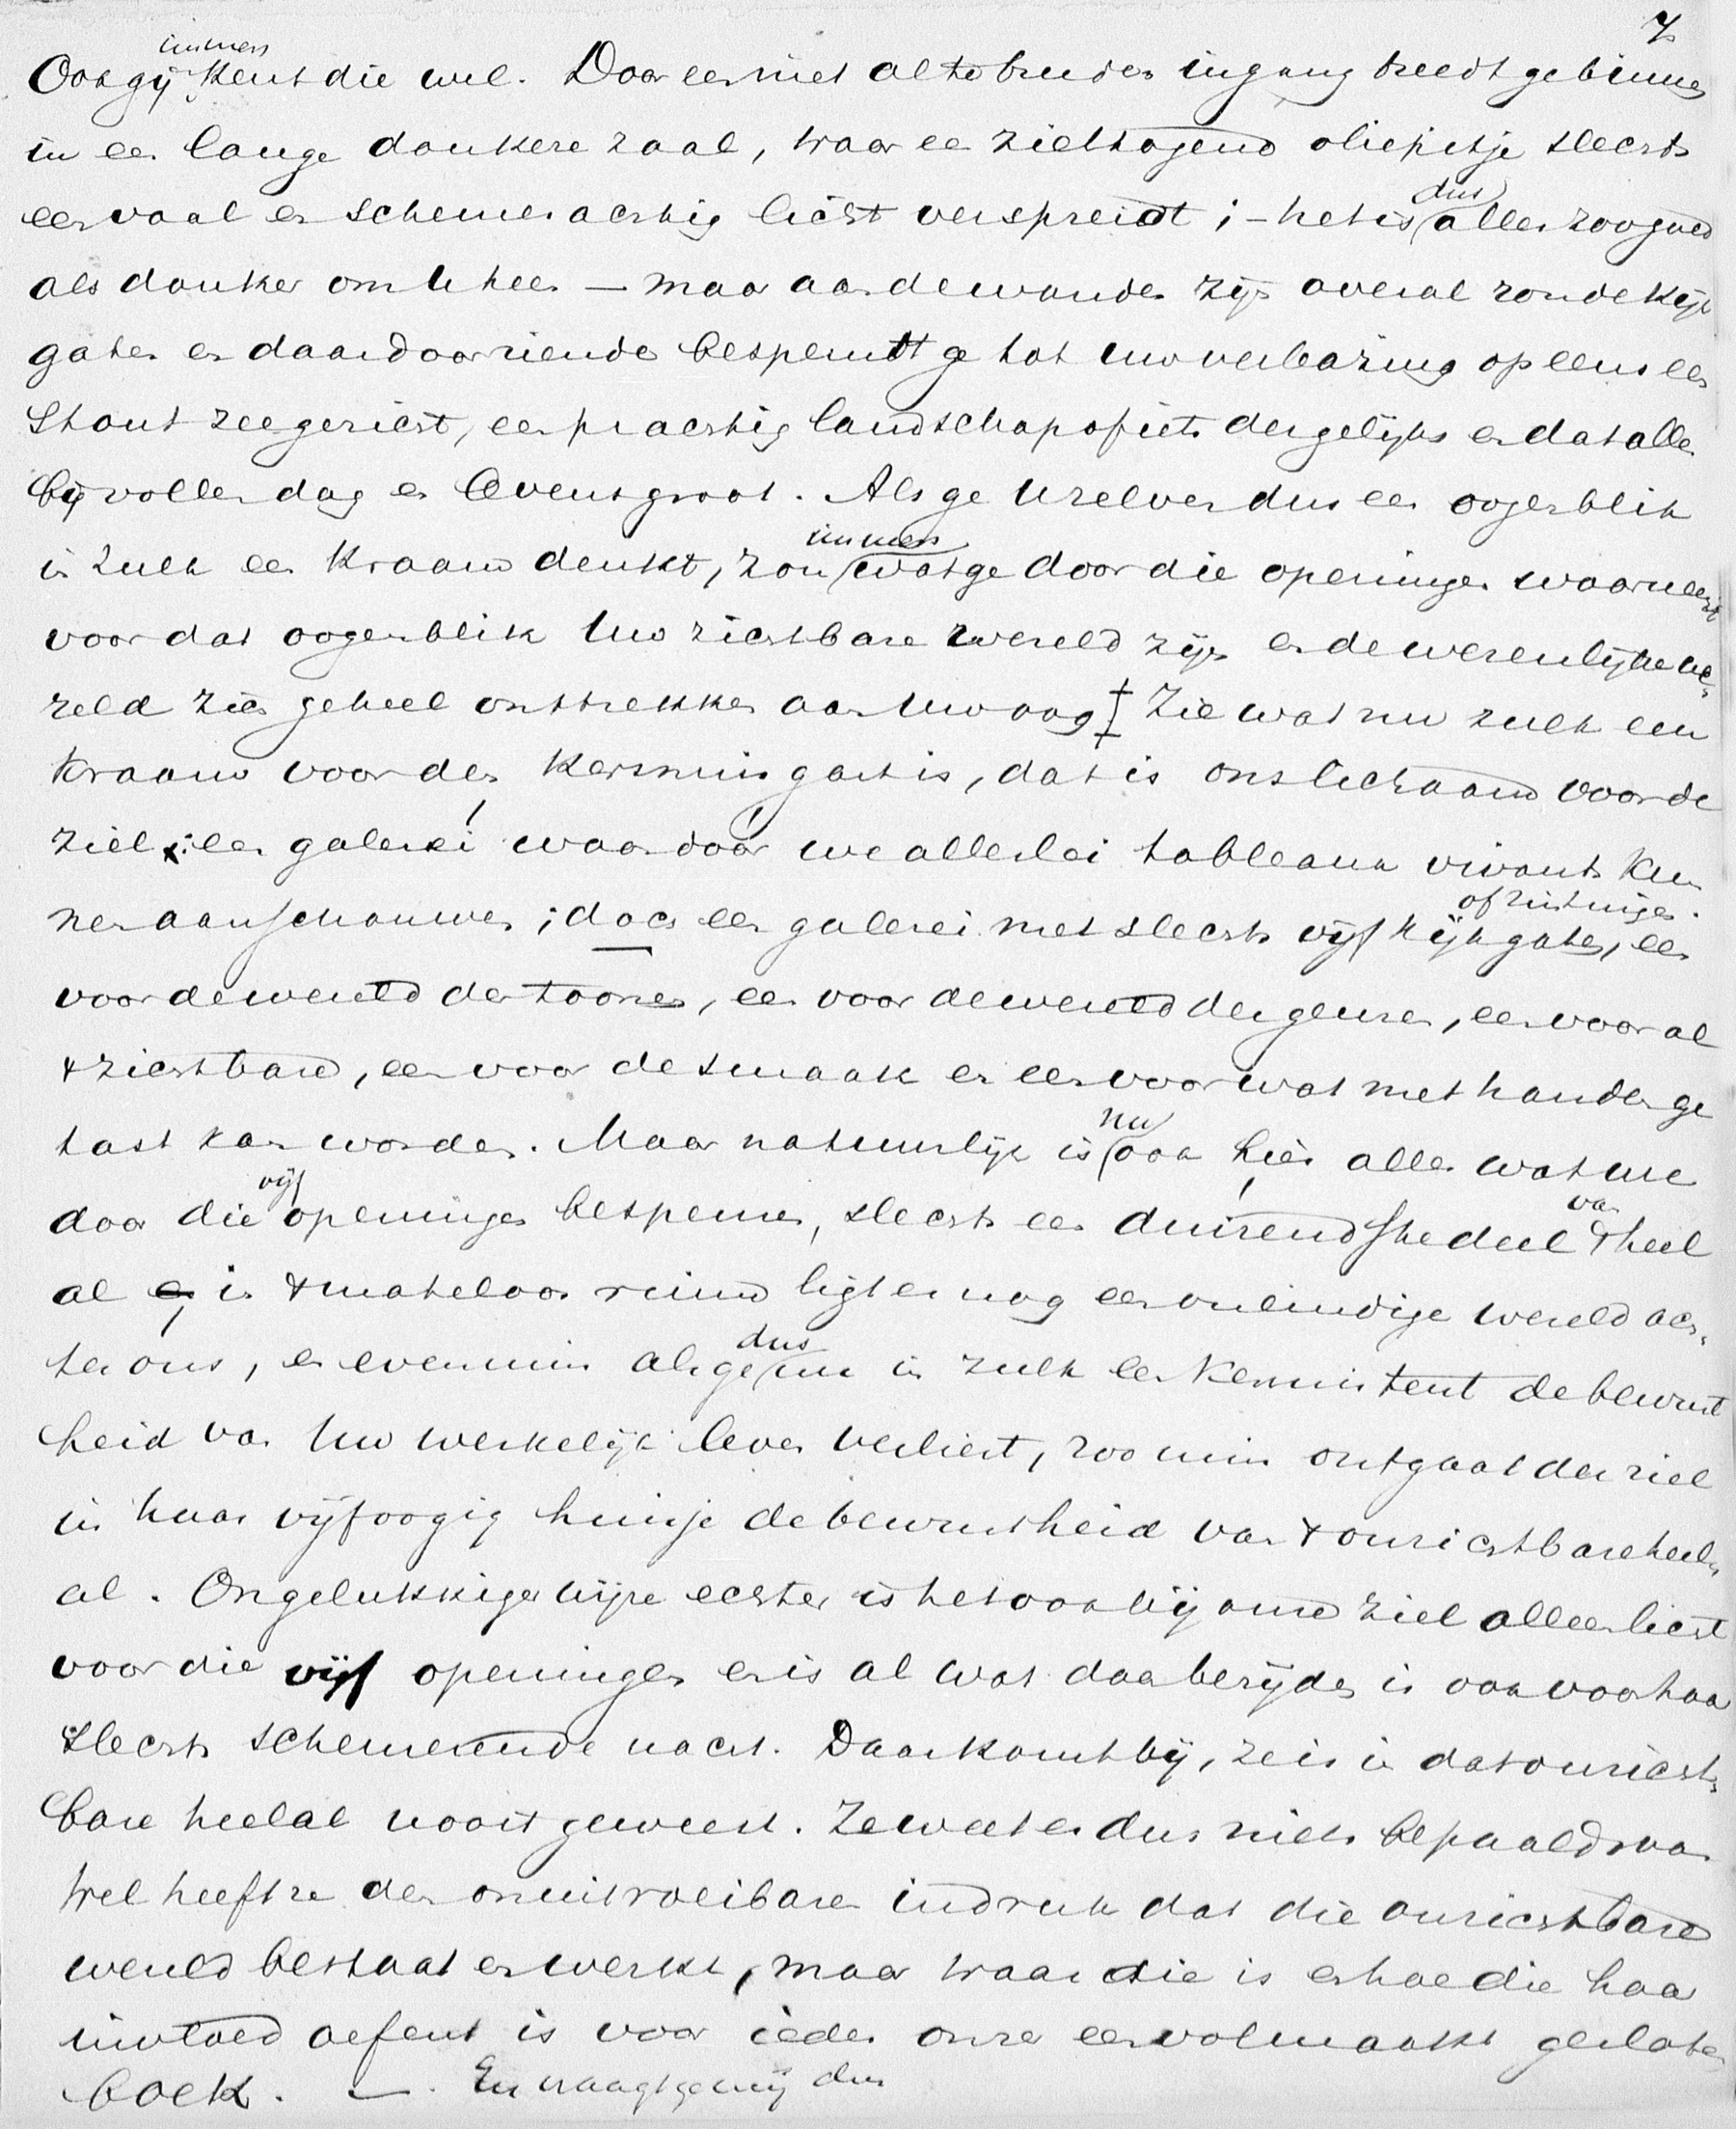 7
immers
Ook gij kent die wel. Door een niet al te breeden ingang treedt ge binnen
in een lange donkere zaal, waar een zieltogend oliepitje slechts
een vaal en schemerachtig licht verspreidt ; – het is dus alles zoo goed
als donker om U heen — maar aan de wanden zijn overal ronde kijk
gaten en daardoor ziende bespeurdt ge tot uw verbazing opeens een
stout zeegezicht, een prachtig landschap of iets dergelijks en dat alles
bij vollen dag en levensgroot. Als ge U zelven dus een oogenblik
in zulk een kraam denkt, zou immers wat ge door die openingen waarneemt
voor dat oogenblik Uw zichtbare wereld zijn en de wezenlijke we-
reld zich geheel onttrekken aan Uw oog ‡ Zie wat nu zulk een
kraam voor den kermisgast is, dat is ons lichaam voor de
ziel : een galerei waardoor we allerlei tableaux vivants kun
nen aanschouwen ; doch een galerei met slechts vijf kijkgaten, een
of zintuigen.
voor de wereld der toonen, een voor de wereld der geuren, een voor al
't zichtbare, een voor de smaak en een voor wat met handen ge
tast kan worden. Maar natuurlijk is nu ook hier alles wat we
door die vijf openingen bespeuren, slechts een duizendste deel van 't heel
al in 't mateloos ruim ligt er nog een oneindige wereld ach-
ter ons, en evenmin als ge dus nu in zulk een kermistent de bewust
heid van Uw werkelijk leven verliest, zoo min ontgaat der ziel
in haar vijfoogig huisje de bewustheid van 't onzichtbare heel-
al. Ongelukkigerwijze echter is het ook bij onze ziel alleen licht
voor die vijf openingen en is al wat daar bezijden is ook voor haar
slechts schemerende nacht. Daar komt bij, ze is in dat onzicht-
bare heelal nooit geweest. Ze weet er dus niets bepaalds van
Wel heeft ze den onuitroeibaren indruk dat die onzichtbare
wereld bestaat en werkt, maar waar die is en hoe die haar
invloed oefent is voor ieder onzer een volmaakt gesloten
boek. —. En vraagt ge mij dus